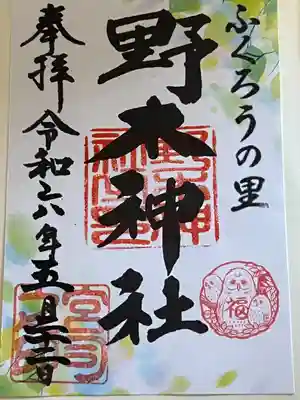 ふくろうの里
野木神社
奉拝 令和六年五月二十二日
福